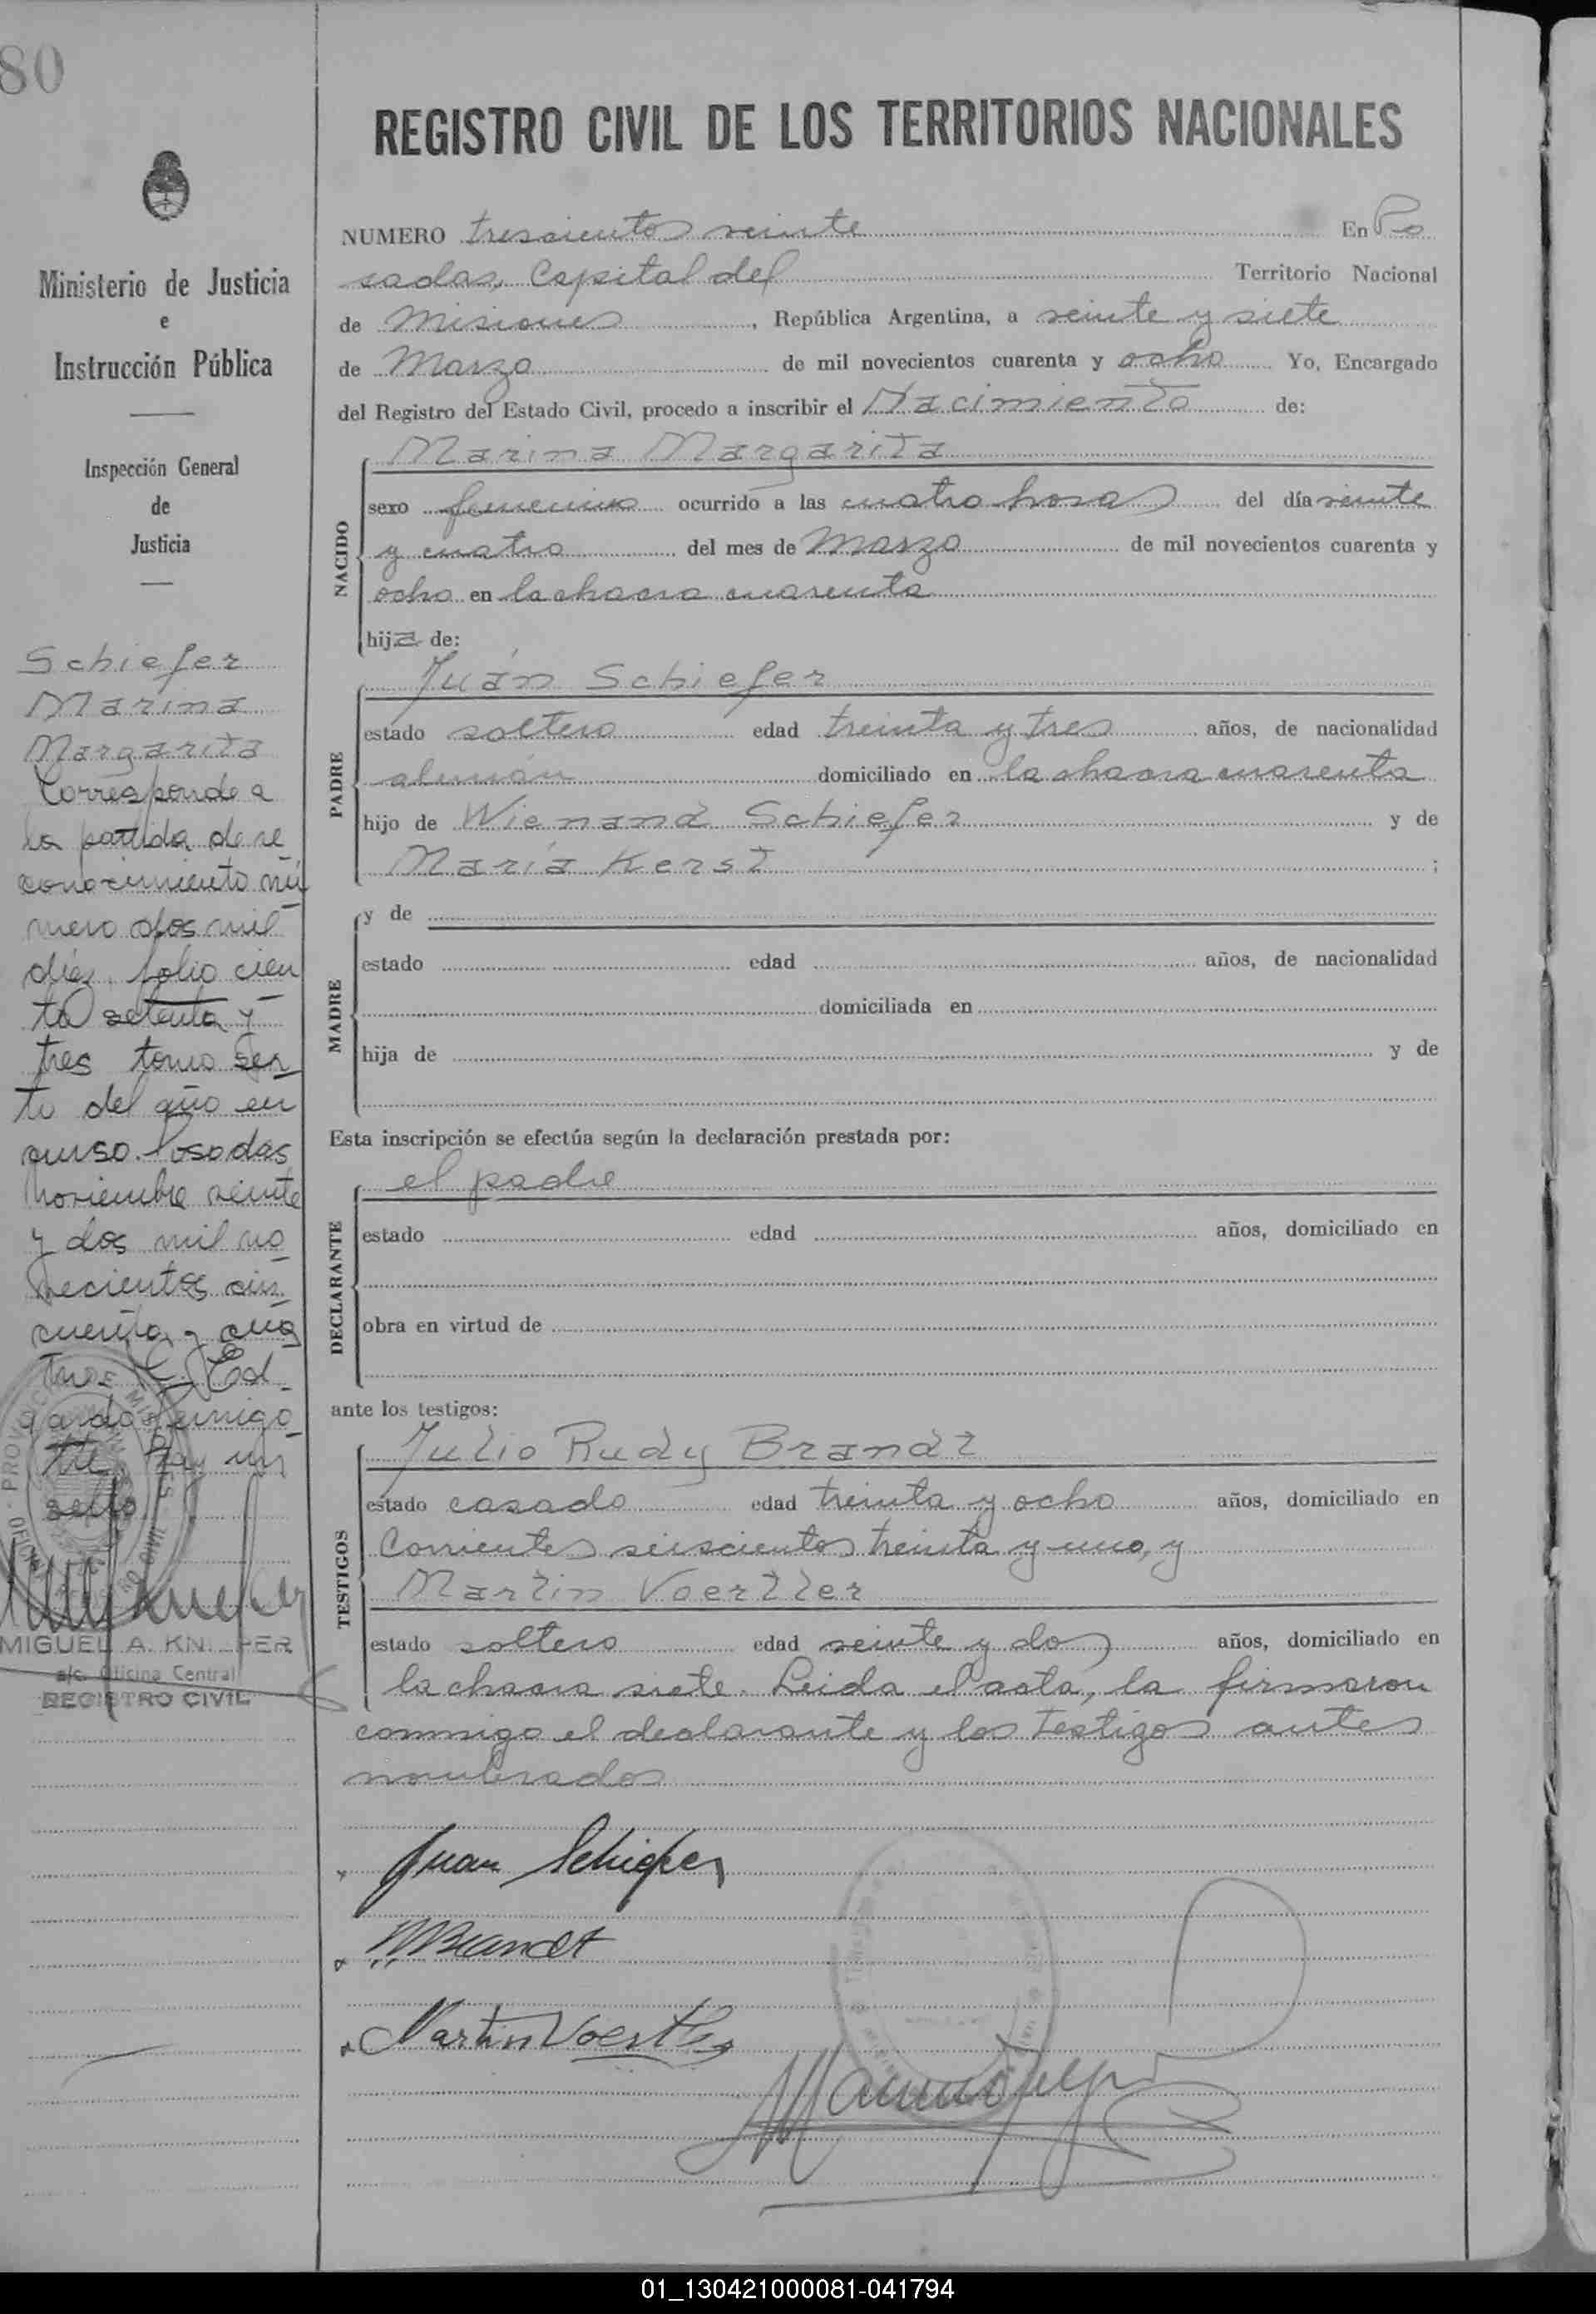 80
REGISTRO CIVIL DE LOS TERRITORIOS NACIONALES
Ministerio de Justicia
e
Instrucción Pública
Inspección General
de
Justicia
Schiefer
Marina
Margarita
Corresponde a
la partida de re
conocimiento nú
mero dos mil
diez, folio cien
to setenta y
tres tomo
to del año en
curso. Posadas
Noviembre veinte
y dos mil no
vecientos cin
cuenta y cua
tro.
hay un
sello
MIGUEL A. KN
a/c. Oficina Central
REGISTRO CIVIL
NUMERO trescientos veinte En Po
sadas, Capital del Territorio Nacional
de Misiones, República Argentina, a veinte y siete
de Marzo de mil novecientos cuarenta y ocho Yo, Encargado
del Registro del Estado Civil, procedo a inscribir el Nacimiento de:
NACIDO
Marina Margarita
sexo femenino ocurrido a las cuatro horas del día veinte
y cuatro del mes de Marzo de mil novecientos cuarenta y
ocho en la chacra cuarenta
hija de:
PADRE
Juán Schiefer
estado soltero edad treinta y tres años, de nacionalidad
alemán domiciliado en la chacra cuarenta
hijo de Wienand Schiefer y de
María Kerst ;
MADRE
y de
estado edad años, de nacionalidad
domiciliada en
hija de y de
Esta inscripción se efectúa según la declaración prestada por:
DECLARANTE
el padre
estado edad años, domiciliado en
obra en virtud de
ante los testigos:
TESTIGOS
Julio Rudy Brandt
estado casado edad treinta y ocho años, domiciliado en
Corrientes seiscientos treinta y uno, y
Martin Voertler
estado soltero edad veinte y dos años, domiciliado en
la chacra siete. Leida el acta, la firmaron
conmigo el declarante y los testigos antes
nombrados
Juan Schiefer
Brandt
Martin Voertler
01_130421000081-041794